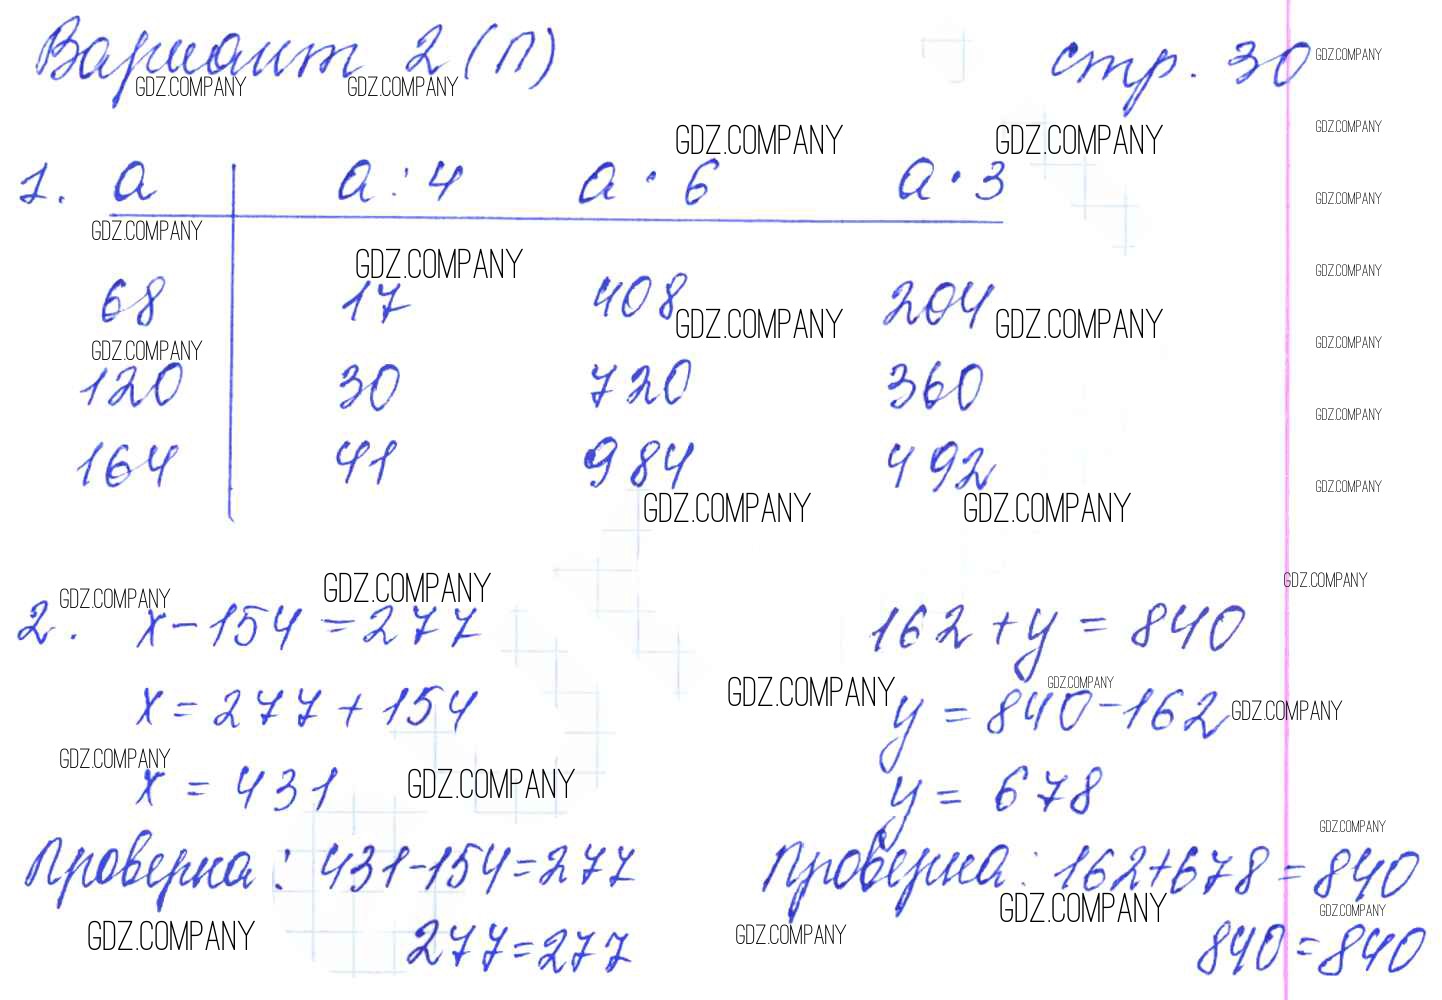 Вариант 2 (П) стр. 30
GDZ.COMPANY
GDZ.COMPANY GDZ.COMPANY
GDZ.COMPANY GDZ.COMPANY GDZ.COMPANY
1. a a : 4 a · 6 a · 3
GDZ.COMPANY
GDZ.COMPANY
GDZ.COMPANY GDZ.COMPANY
68 17 408 204
GDZ.COMPANY GDZ.COMPANY
GDZ.COMPANY GDZ.COMPANY
120 30 720 360
GDZ.COMPANY
164 41 984 492
GDZ.COMPANY
GDZ.COMPANY GDZ.COMPANY
GDZ.COMPANY GDZ.COMPANY GDZ.COMPANY
2. x - 154 = 277 162 + y = 840
GDZ.COMPANY GDZ.COMPANY
x = 277 + 154 y = 840 - 162
GDZ.COMPANY
GDZ.COMPANY GDZ.COMPANY
x = 431 y = 678
GDZ.COMPANY
Проверка: 431-154=277 Проверка: 162+678=840
GDZ.COMPANY GDZ.COMPANY
GDZ.COMPANY GDZ.COMPANY
277=277 840=840